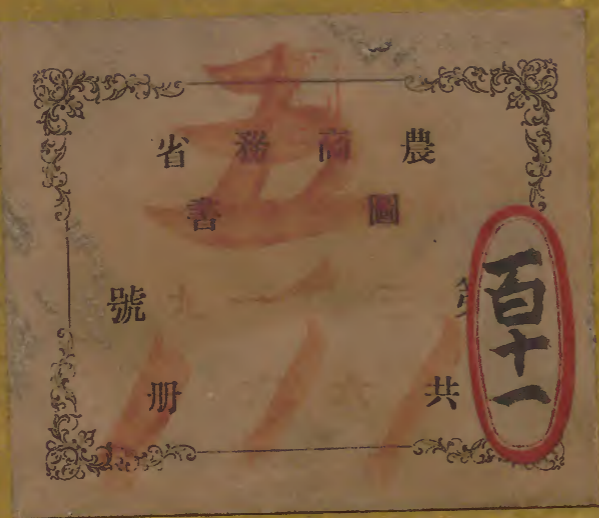 農商務省
圖書
第 號
共 册
五
百十一